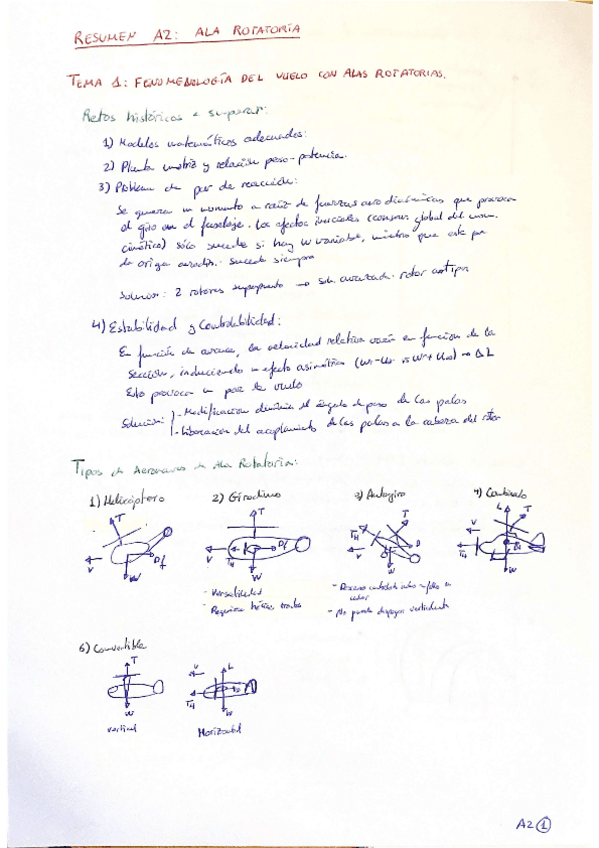 RESUMEN A2: ALA ROTATORIA
TEMA 1: FENOMENOLOGÍA DEL VUELO CON ALAS ROTATORIAS.
Retos históricos a superar:
1) Modelos matemáticos adecuados:
2) Planta motriz y relación peso-potencia.
3) Problema de par de reacción:
Se genera un momento a raíz de fuerzas aerodinámicas que provoca
el giro en el fuselaje. Los efectos inerciales (conserv global del mom.
cinético) sólo sucede si hay w variable, mientras que este par
de origen aerodin. sucede siempre
Solucion: 2 rotores rotor antipar
4) Estabilidad y Controlabilidad:
En función de avance, la velocidad relativa varía en función de la
sección, induciendo un efecto asimétrico ΔL
Esto provoca un par de vuelco
Solución: - Modificación dinámica el ángulo de paso de las palas
- Liberación del acoplamiento de las palas a la cabeza del rotor
Tipos de Aeronaves de Ala Rotatoria:
1) Helicóptero 2) Girodino 3) Autogiro 4) Combinado
T T TH T L T
V Df V TH Df V D V TH
W W W W
- Versatilidad
- Requiere hélices
- No puede despegar verticalmente
5) Convertible
T V L
TH
W W
Vertical Horizontal
A2 1